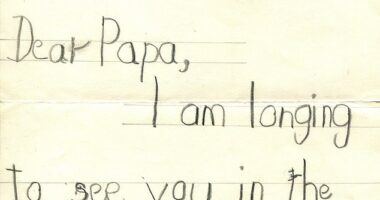 Dear Papa,
I am longing
to see you in the